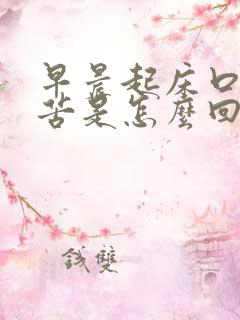 早晨起床口
苦是怎麼回
錢雙